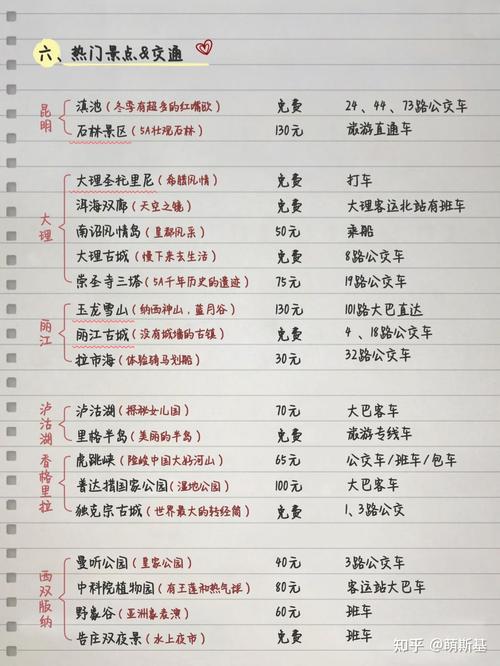 六、热门景点&交通
昆明
滇池（冬季有超多的红嘴欧） 免费 24、44、73路公交车
石林景区（5A壮观石林） 130元 旅游直通车
大理
大理圣托里尼（希腊风情） 免费 打车
洱海双廊（天空之镜） 免费 大理客运北站有班车
南诏风情岛（皇都风采） 50元 乘船
大理古城（慢下来去生活） 免费 8路公交车
崇圣寺三塔（5A千年历史的遗迹） 75元 19路公交车
丽江
玉龙雪山（纳西神山，蓝月谷） 130元 101路大巴直达
丽江古城（没有城墙的古镇） 免费 4、18路公交车
拉市海（体验骑马划船） 30元 32路公交车
泸沽湖
泸沽湖（探秘女儿国） 70元 大巴客车
里格半岛（美丽的半岛） 免费 旅游专线车
香格里拉
虎跳峡（险峻中国大好河山） 65元 公交车/班车/包车
普达措国家公园（湿地公园） 100元 大巴客车
独克宗古城（世界最大的转经筒） 免费 1、3路公交
西双版纳
曼听公园（皇家公园） 40元 3路公交车
中科院植物园（有王莲和热气球） 80元 客运站大巴车
野象谷（亚洲象表演） 60元 班车
告庄双夜景（水上夜市） 免费 班车
知乎 @萌斯基